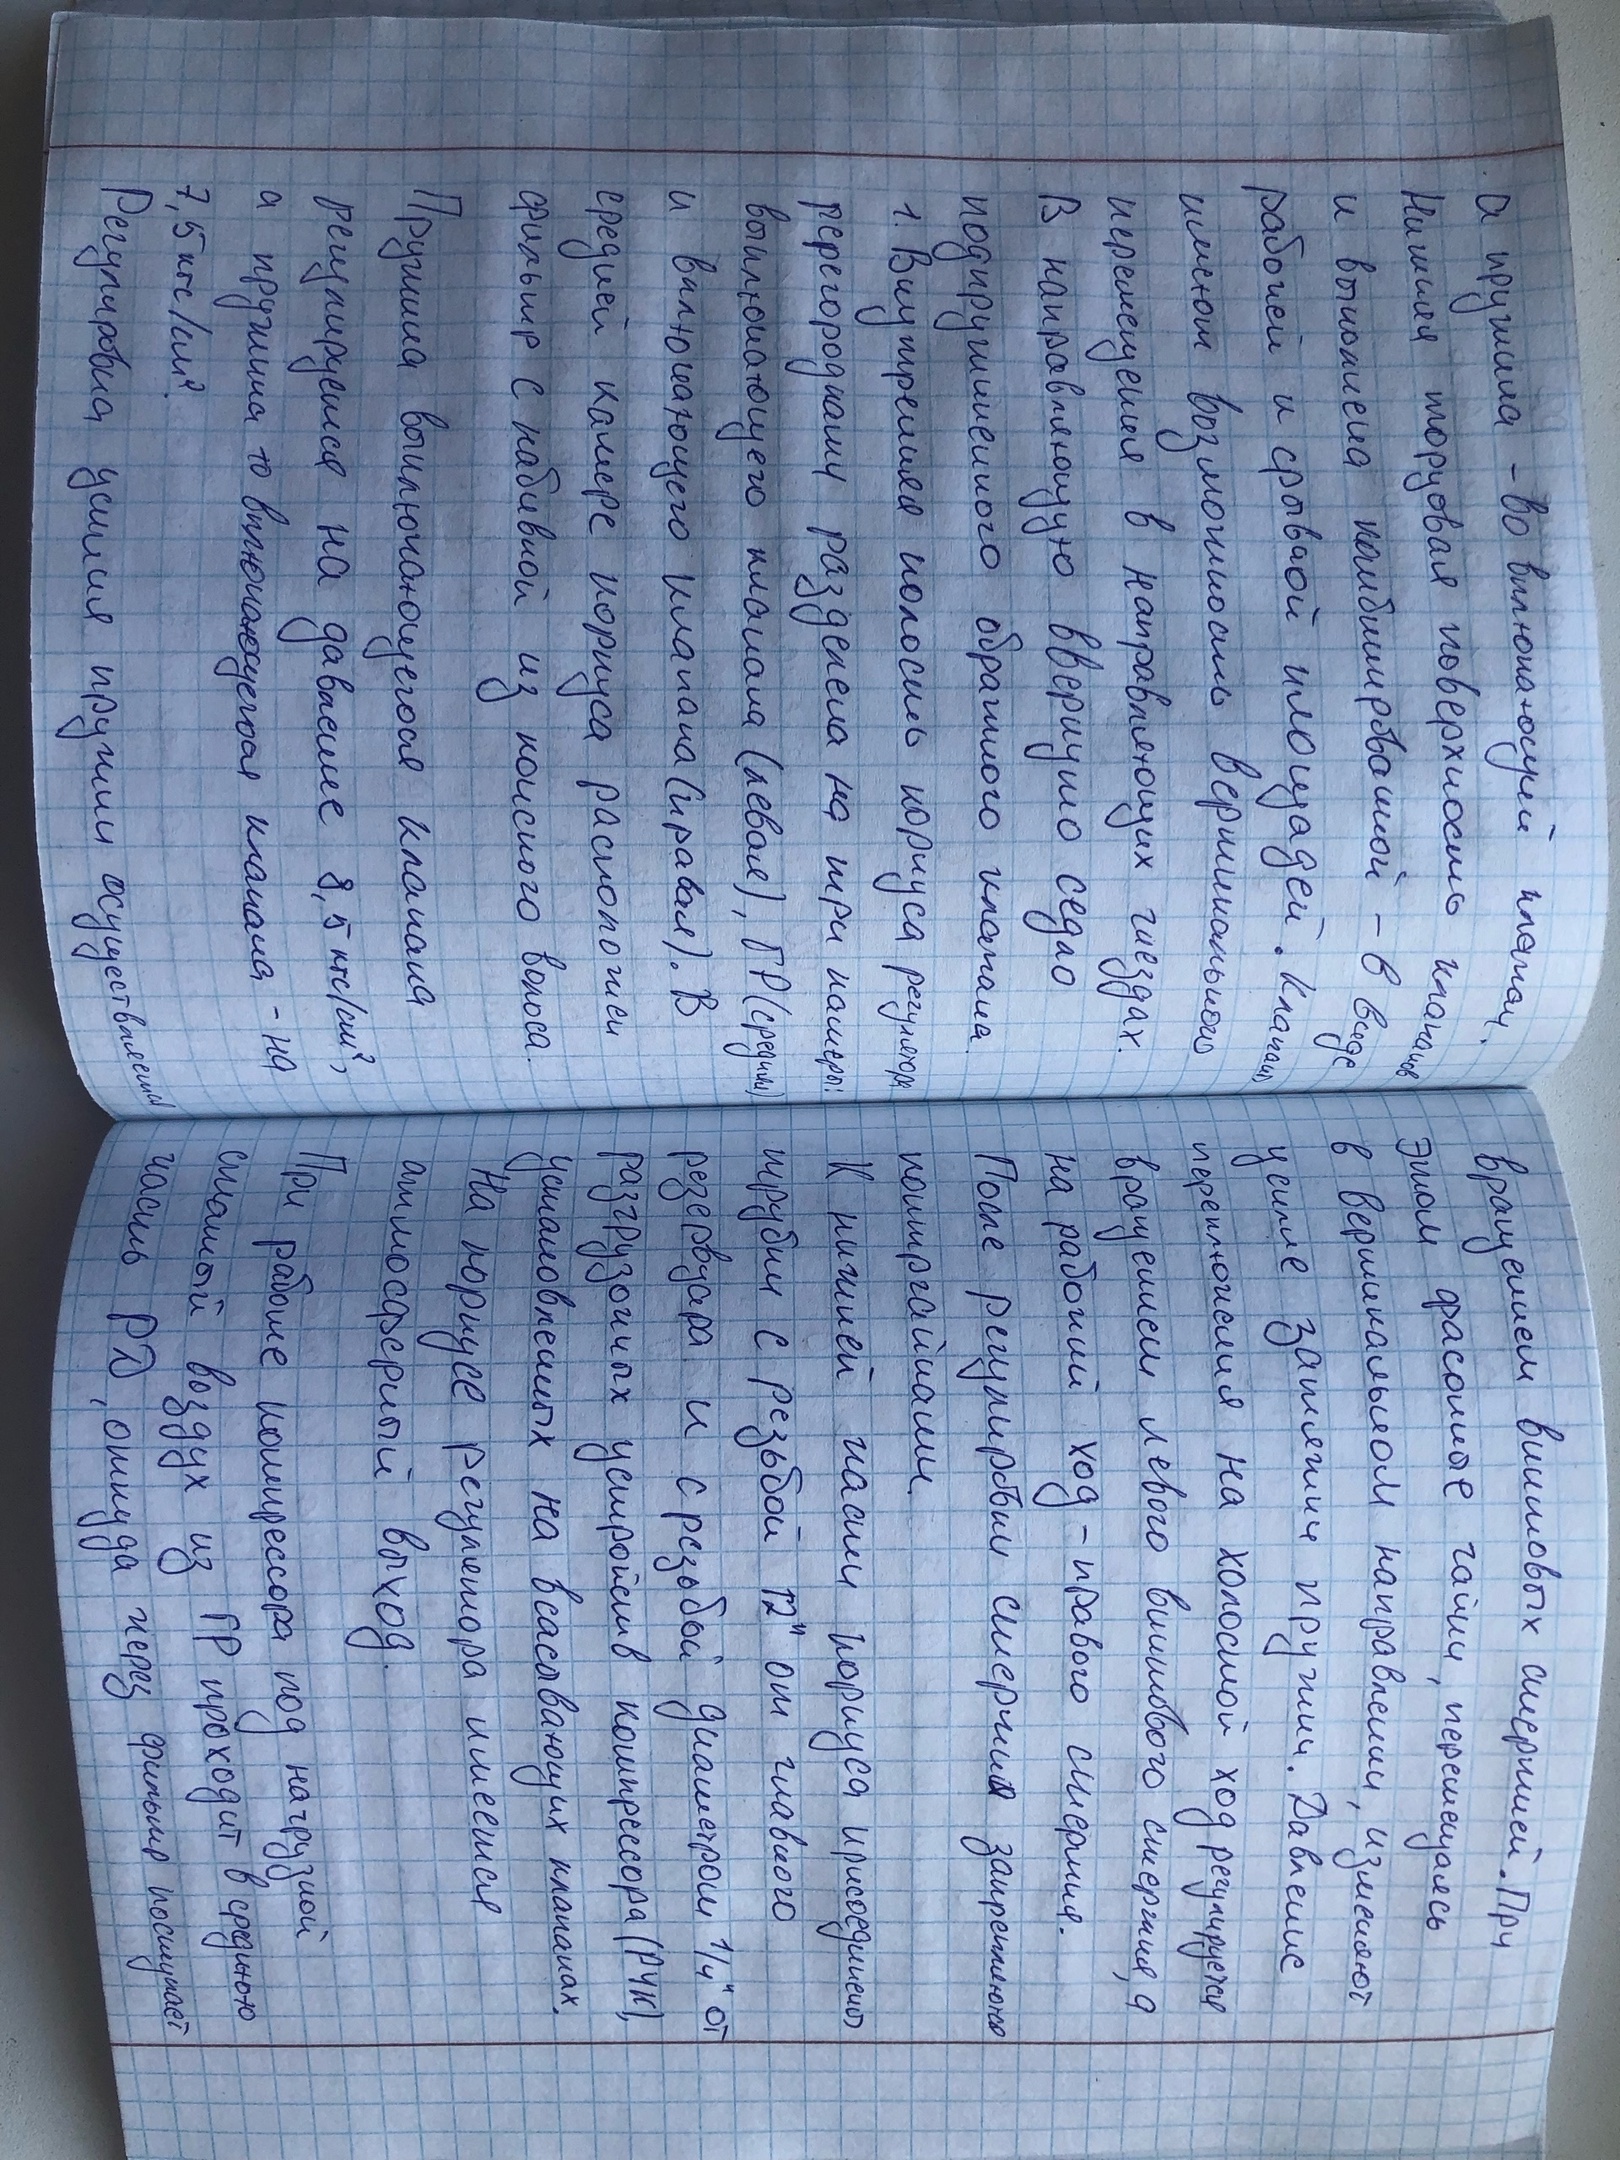 а пружина - во включающий клапан.
Нижняя торцовая поверхность клапанов
и выполнена комбинированной - в виде
рабочей и срывной площадей. Клапаны
имеют возможность вертикального
перемещения в направляющих гнездах.
В направляющую ввернуто седло
подпружиненного обратного клапана.
1. Внутренняя полость корпуса регулятора
перегородками разделена на три камеры:
выключающего клапана (левая), ГР (средняя)
и включающего клапана (правая). В
средней камере корпуса расположен
фильтр с набивкой из конского волоса.
Пружина выключающегося клапана
регулируется на давление 8,5 кгс/см²,
а пружина то включающегося клапана - на
7,5 кгс/см².
Регулировка усилия пружин осуществляется
вращением винтовых стержней. При
этом фасонные гайки, перемещаясь
в вертикальном направлении, изменяют
усилие затяжки пружин. Давление
переключения на холостой ход регулируется
вращением левого винтового стержня, а
на рабочий ход - правого стержня.
После регулировки стержня закреплено
контргайками.
К нижней части корпуса присоединено
трубки с резьбой 12" от главного
резервуара и с резьбой диаметром 1/4" от
разгрузочных устройств компрессора (РУК),
установленных на всасывающих клапанах.
На корпусе регулятора имеется
атмосферный выход.
При работе компрессора под нагрузкой
сжатый воздух из ГР проходит в среднюю
часть РД, откуда через фильтр поступает